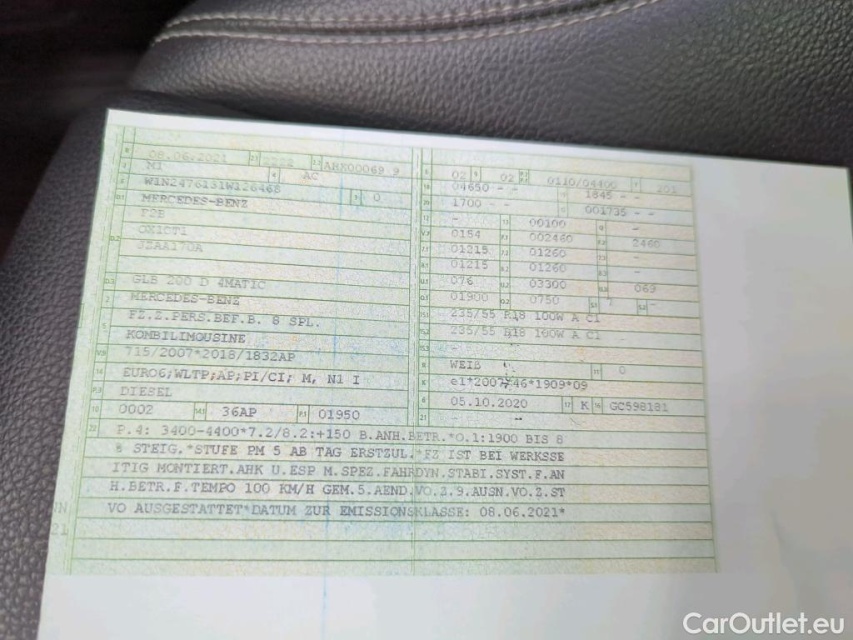 08.06.2021 2222 AHK00069 9
M1 AC
W1N2476131W126468 0
MERCEDES-BENZ
F2B
GLB 200 D 4MATIC
MERCEDES-BENZ
FZ.Z.PERS.BEF.B. 8 SPL.
KOMBILIMOUSINE
715/2007*2018/1832AP
EURO6;WLTP;AP;PI/CI; M, N1 I
DIESEL
0002 36AP 01950
02 02 0110/04400 201
04650 - - 1845 - -
1700 - - 001735 - -
- 00100 -
0154 002460 2460
01215 01260 -
01215 01260 -
076 03300 069
01900 0750
235/55 R18 100W A C1
235/55 R18 100W A C1
-
WEIß 0
e1*2007/46*1909*09
05.10.2020 K GC598181
-
P.4: 3400-4400*7.2/8.2:+150 B.ANH.BETR.*O.1:1900 BIS 8
% STEIG.*STUFE PM 5 AB TAG ERSTZUL.*FZ IST BEI WERKSSE
ITIG MONTIERT.AHK U.ESP M.SPEZ.FAHRDYN.STABI.SYST.F.AN
H.BETR.F.TEMPO 100 KM/H GEM.5.AEND.VO.Z.9.AUSN.VO.Z.ST
VO AUSGESTATTET*DATUM ZUR EMISSIONSKLASSE: 08.06.2021*
CarOutlet.eu